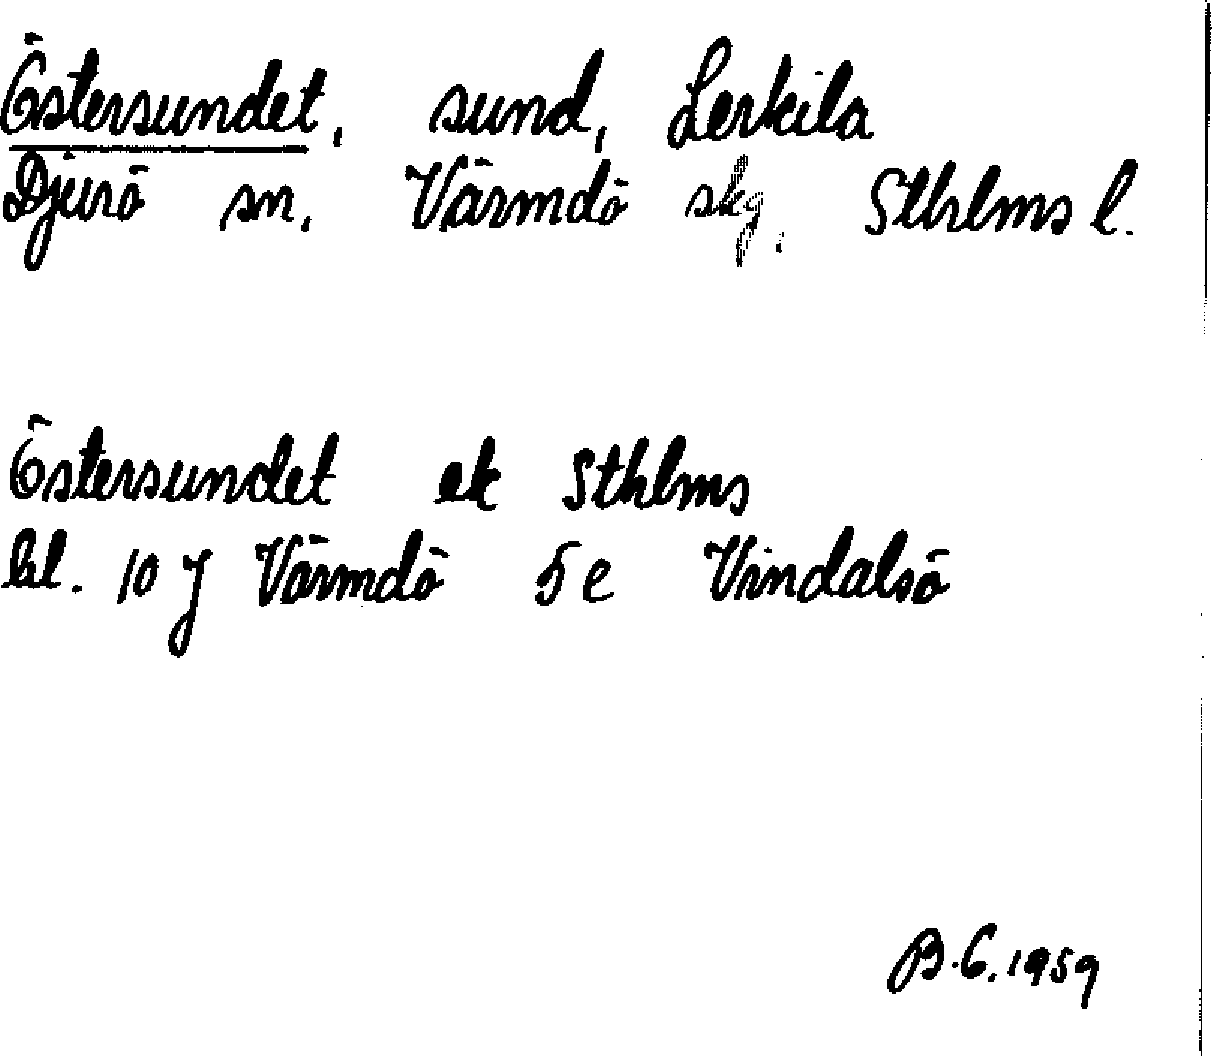 Östersundet, sund, Lerkila
Djurö sn. Värmdö skg. Sthlms l.
Östersundet ek Sthlms
bl. 10 J Värmdö 5 e Vindalsö
B.G. 1959